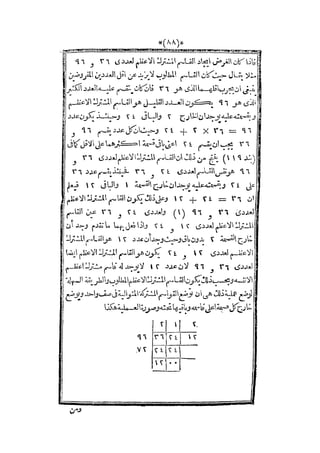 *(٨٨)*
فاذا كان الغرض ايجاد القاسم المشترك الاعظم لعددى ٣٦ و ٩٦
مثلا يقال حيث كان القاسم المطلوب لايزيد عن اقل العددين المفروضين
ينبغى ان يجرب اقلهما الذى هو ٣٦ فان كان يقسم عليه العدد الكبير
الذى هو ٩٦ يكون العدد القليل هو القاسم المشترك الاعظم
وبقسمته عليه يوجد ان الخارج ٢ والباقى ٢٤ وحينئذ يكون عدد
٩٦ = ٣٦ × ٢ + ٢٤ وحيث ان كل عدد يقسم ٩٦ و
٣٦ يجب ان يقسم ٢٤ اكثرهما على الاقل كما فى
(بند ١١٩) ينتج من ذلك ان القاسم المشترك الاعظم لعددى ٣٦ و
٩٦ هو نفس القاسم لعددى ٢٤ و ٣٦ فحينئذ يقسم عدد ٣٦
على ٢٤ وبقسمته عليه يوجد ان خارج القسمة ١ والباقى ١٢ فيعلم
ان ٣٦ = ٢٤ + ١٢ وعلى ذلك يكون القاسم المشترك الاعظم
لعددى ٣٦ و ٩٦ (١) ولعددى ٢٤ و ٣٦ عين القاسم
المشترك الاعظم لعددى ١٢ و ٢٤ واذا فعل بهما ما تقدم وجد أن
خارج القسمة ٢ بدون باق وحيث وجد أن عدد ١٢ هو القاسم المشترك
الاعظم لعددى ١٢ و ٢٤ يكون هو القاسم المشترك الاعظم ايضا
لعددى ٣٦ و ٩٦ لان عدد ١٢ لا يوجد له قاسم مشترك اعظم
الا نفسه وبحسب ذلك يكون القاسم المشترك الاعظم المطلوب والطريقة السهلة
لوضع عملية ذلك هى ان توضع القواسم المشتركة المتوالية فى صف واحد ويوضع
خارج كل قسمة اعلى قاسمه وباقيها تحته وصورة العملية هكذا
٢ ١ ٢
٩٦ ٣٦ ٢٤ ١٢
٧٢ ٢٤ ٢٤
١٢ ٠٠
ومن